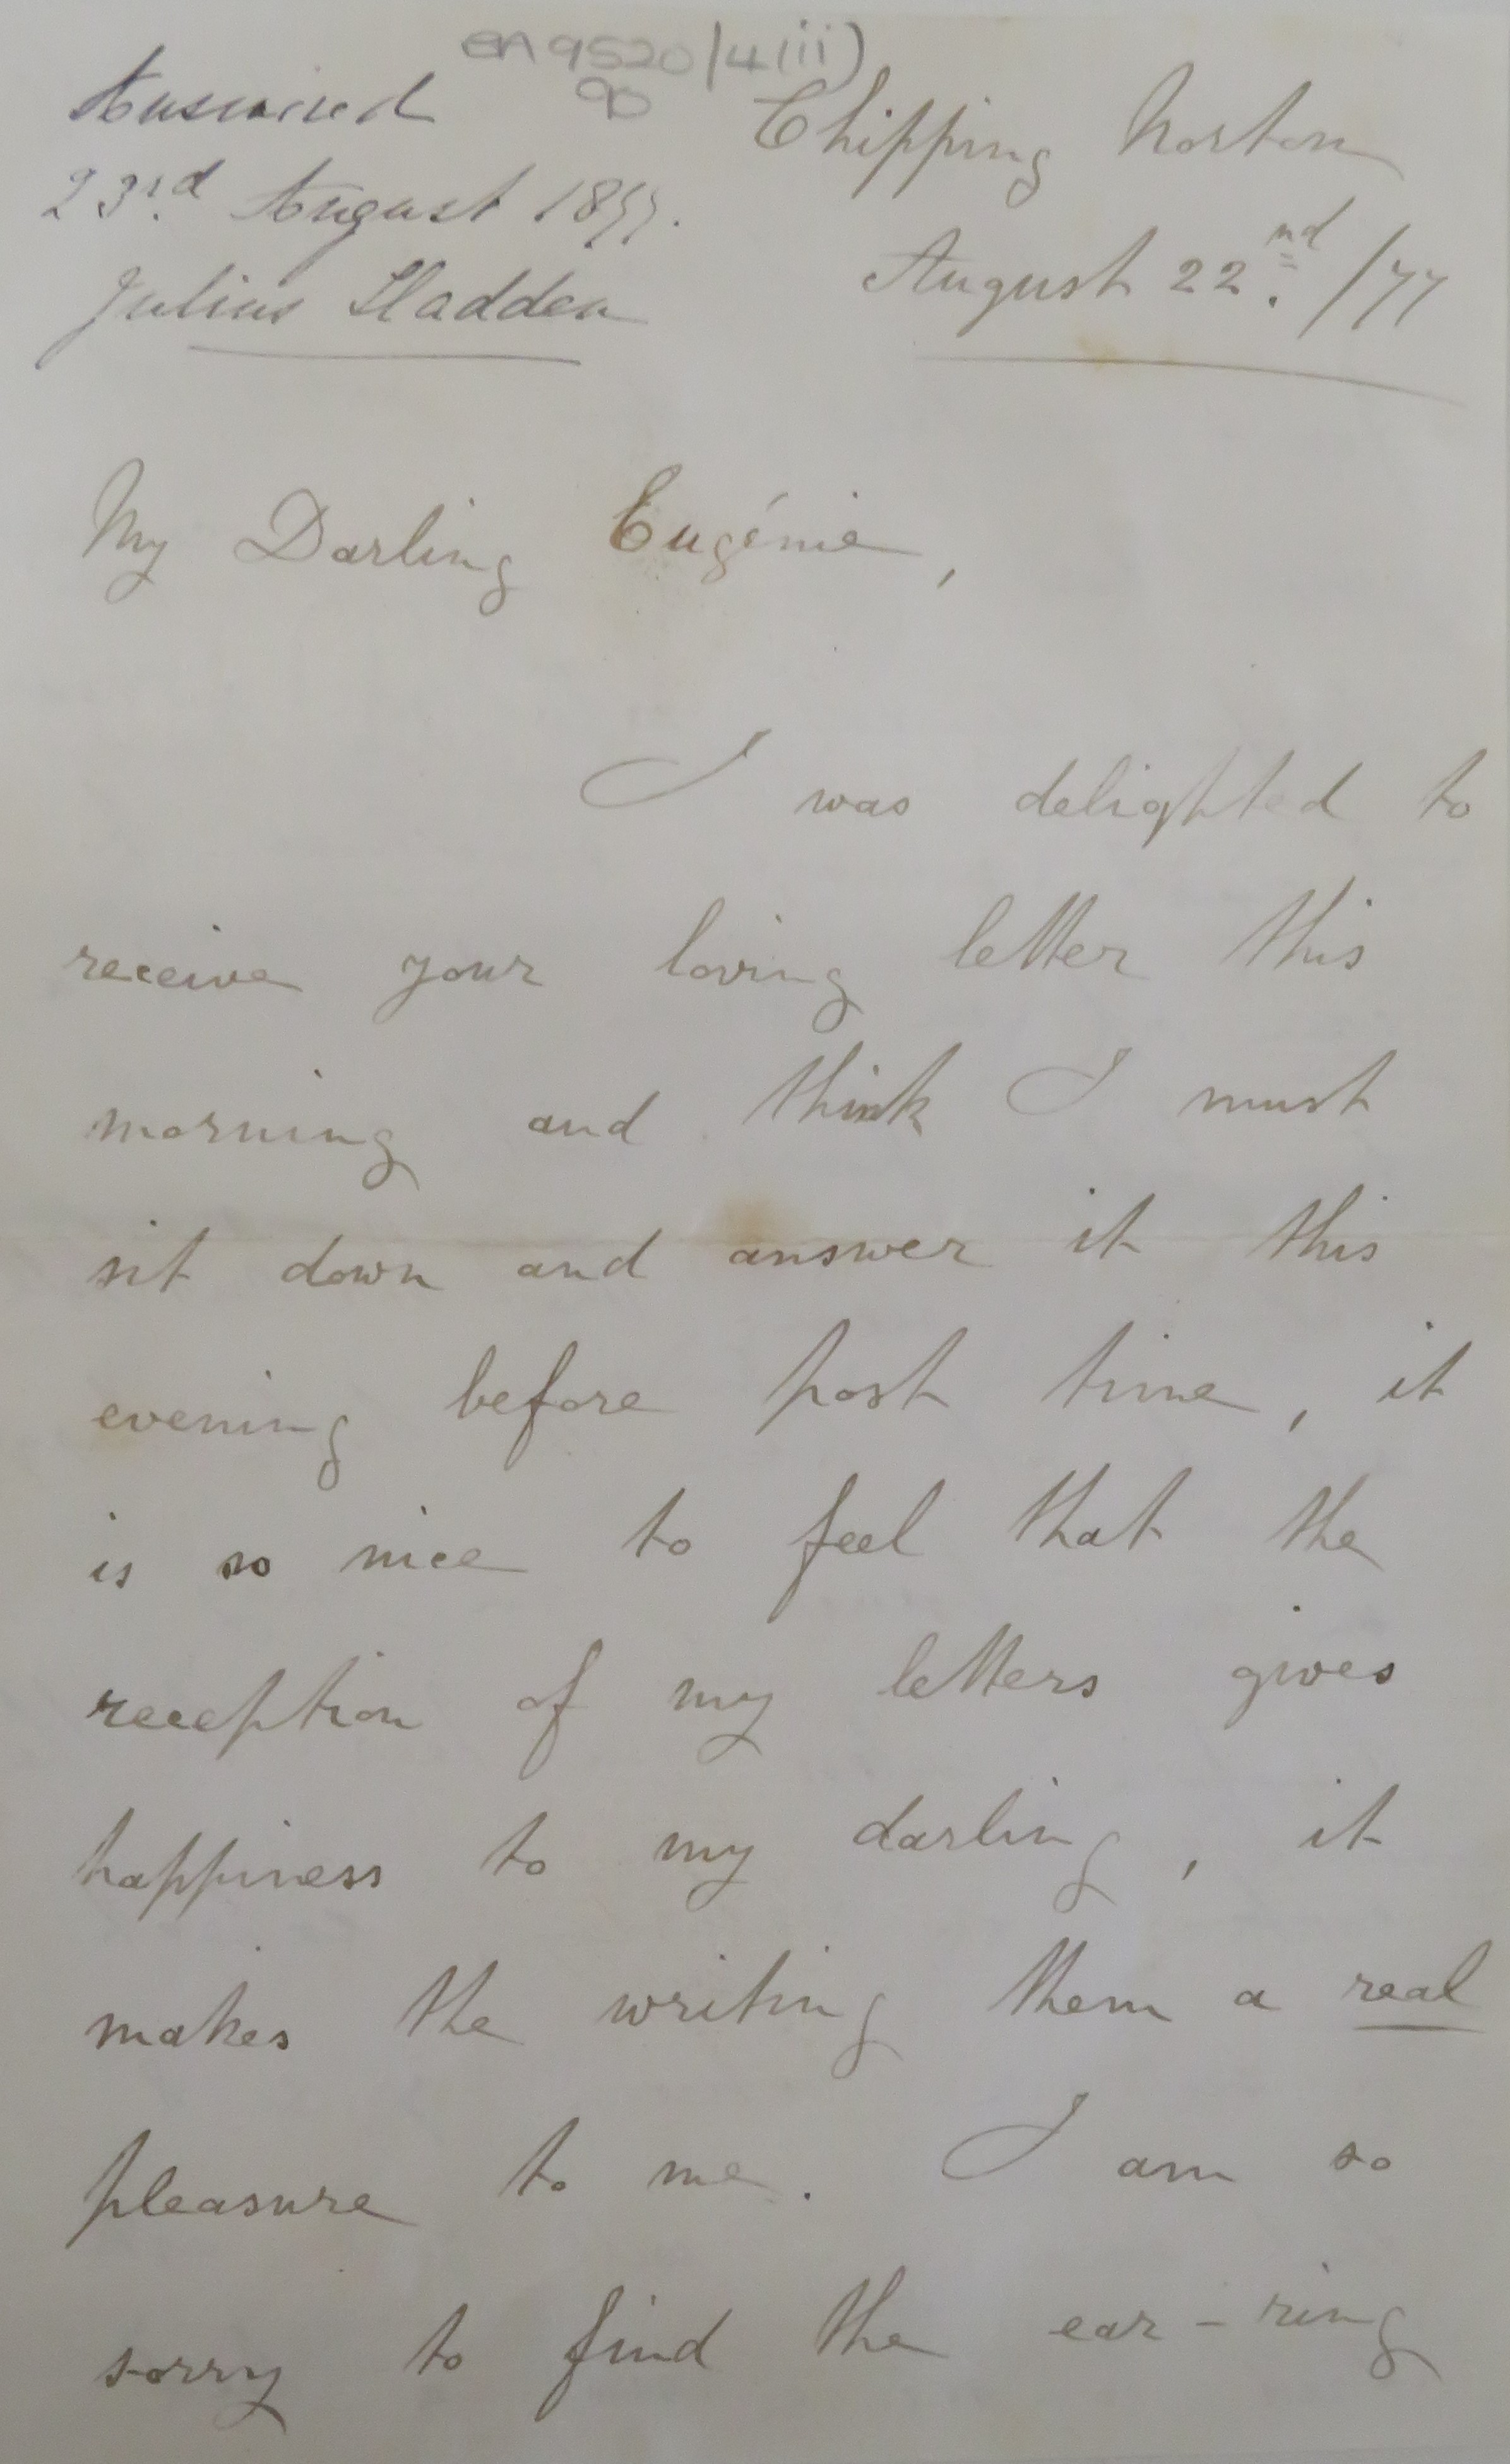 en 9520/4(iii)
90
Answered
23rd August 1877.
Julius Sladden
Chipping Norton
August 22nd. /77
My Darling Eugénie,
I was delighted to
receive your loving letter this
morning and think I must
sit down and answer it this
evening before post time, it
is so nice to feel that the
reception of my letters gives
happiness to my darling, it
makes the writing them a real
pleasure to me. I am so
sorry to find the ear-ring